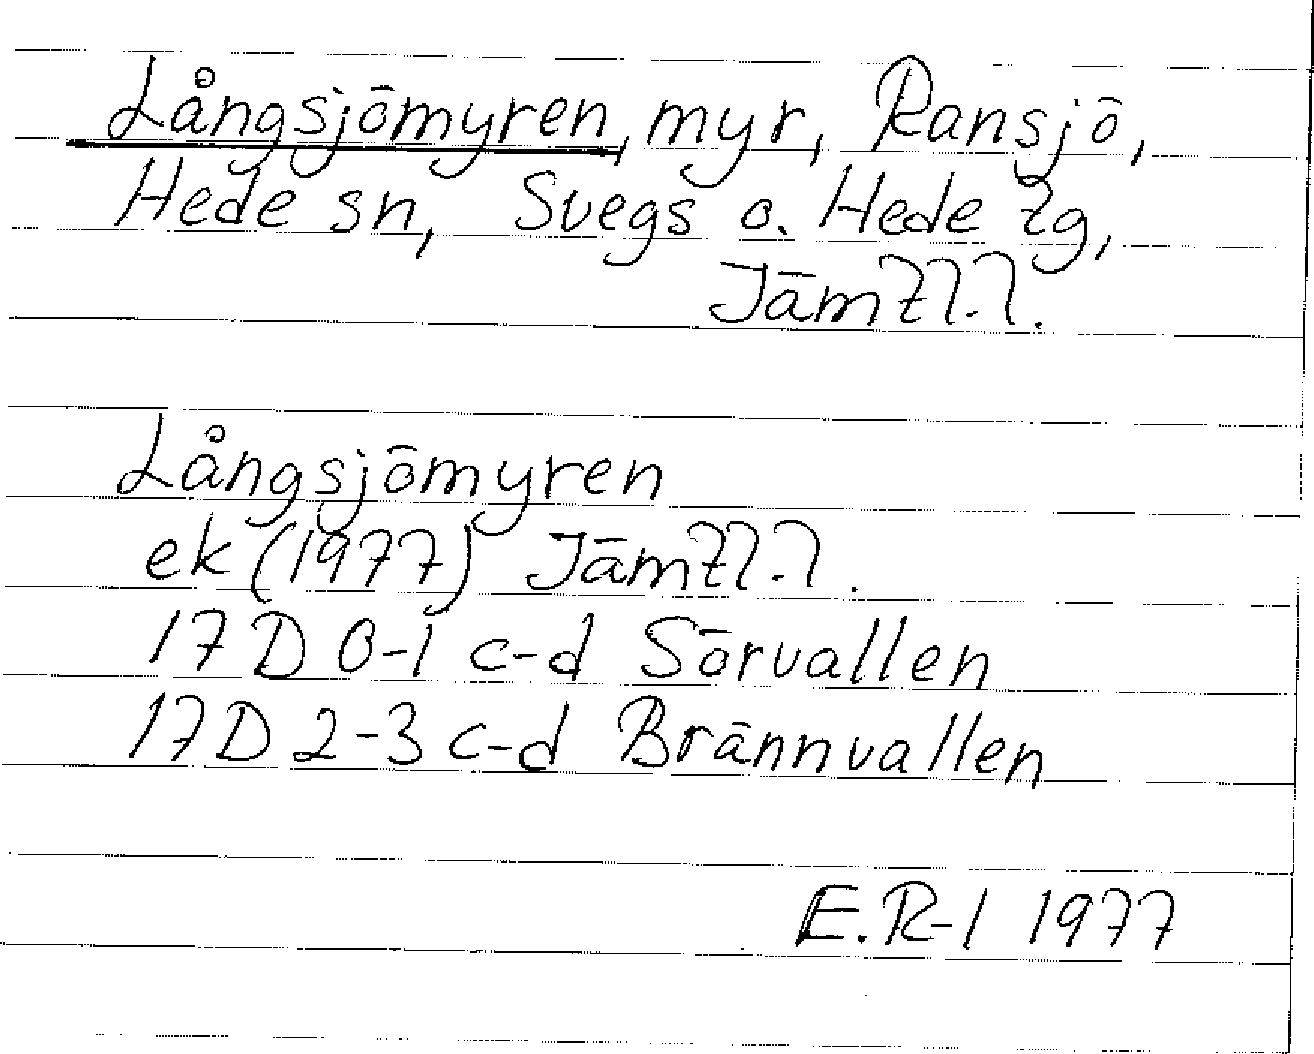 Långsjömyren, myr, Ransjö,
Hede sn, Svegs o. Hede tg,
Jämtl.l.
Långsjömyren
ek (1977) Jämtl.l.
17 D 0-1 c-d Sörvallen
17D 2-3 c-d Brännvallen
E.R-l 1977